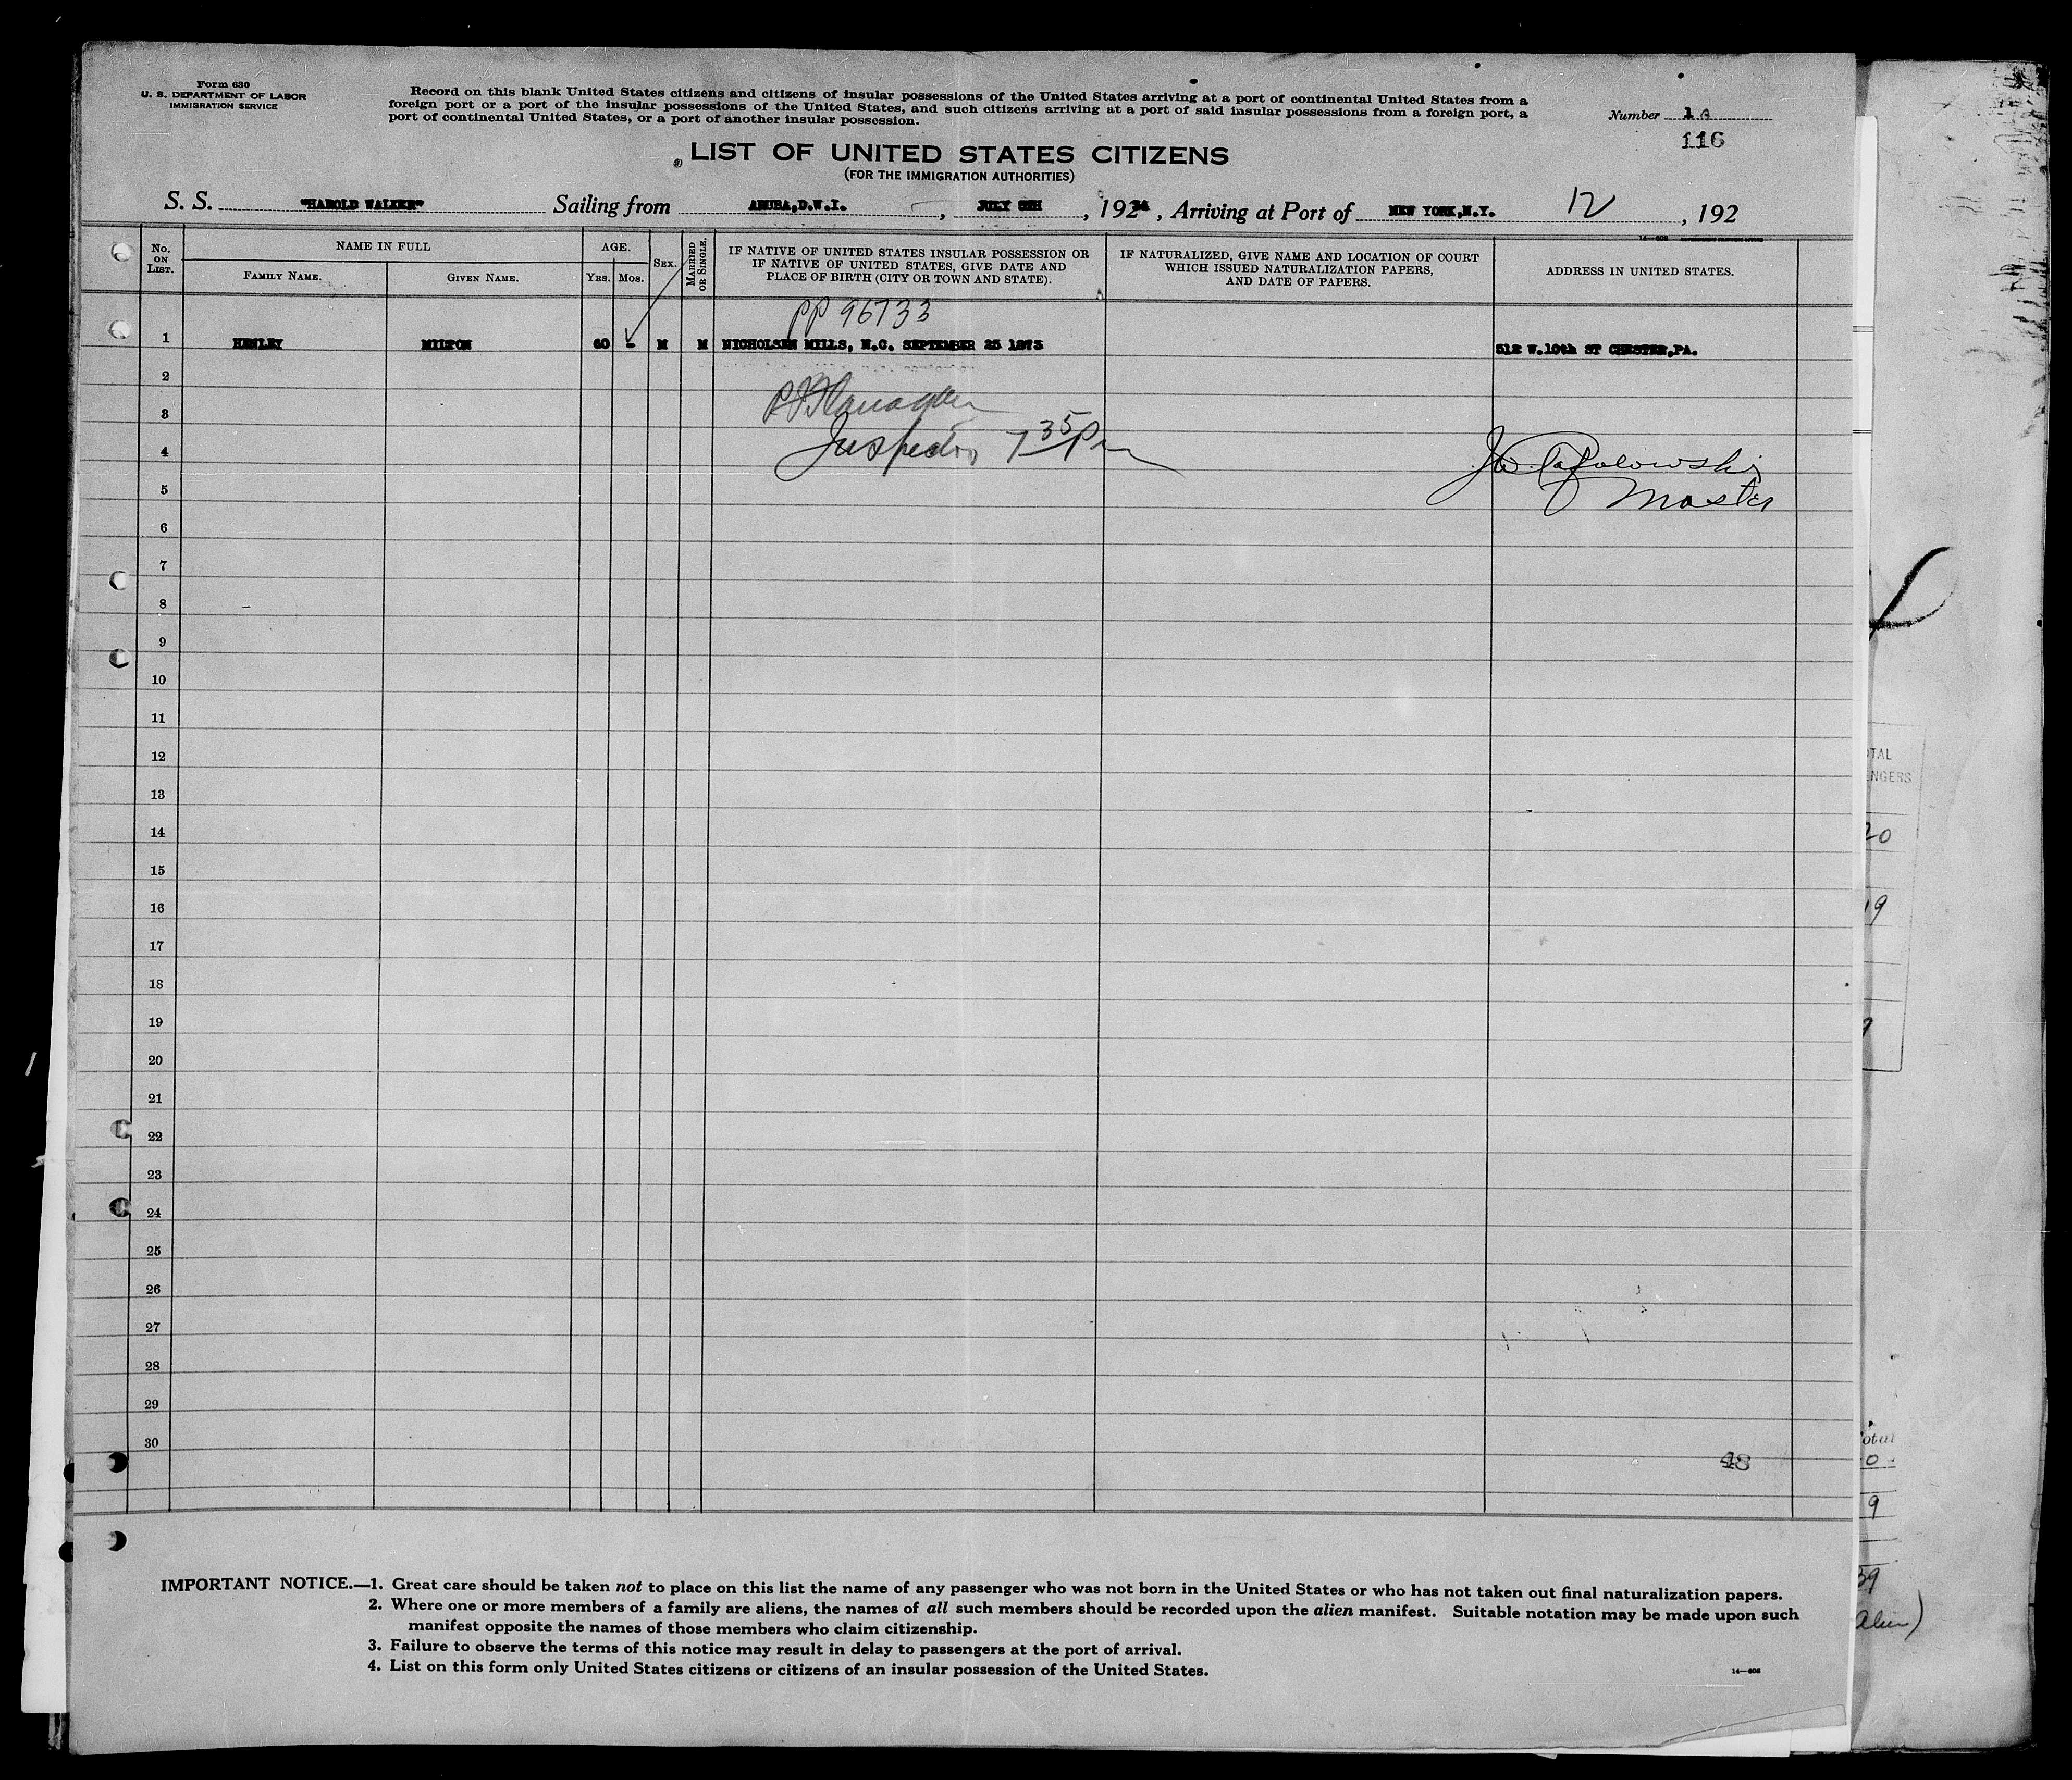 Form 630
U. S. DEPARTMENT OF LABOR
IMMIGRATION SERVICE
Record on this blank United States citizens and citizens of insular possessions of the United States arriving at a port of continental United States from a
foreign port or a port of the insular possessions of the United States, and such citizens arriving at a port of said insular possessions from a foreign port, a
port of continental United States, or a port of another insular possession.
Number 1
116
LIST OF UNITED STATES CITIZENS
(FOR THE IMMIGRATION AUTHORITIES)
S. S. "HAROLD WALKER" Sailing from ARUBA, D.W.I. , JULY 5TH , 1924 , Arriving at Port of NEW YORK, N.Y. 12 , 192
No. ON LIST.
NAME IN FULL
FAMILY NAME.
GIVEN NAME.
AGE.
YRS. MOS.
SEX.
MARRIED OR SINGLE.
IF NATIVE OF UNITED STATES INSULAR POSSESSION OR
IF NATIVE OF UNITED STATES, GIVE DATE AND
PLACE OF BIRTH (CITY OR TOWN AND STATE).
IF NATURALIZED, GIVE NAME AND LOCATION OF COURT
WHICH ISSUED NATURALIZATION PAPERS,
AND DATE OF PAPERS.
ADDRESS IN UNITED STATES.
PP 96733
1 HENLEY MILTON 60 - M M NICHOLSEN MILLS, N.C. SEPTEMBER 25 1873 512 W.10th ST CHESTER, PA.
2
3
Inspector 7 35 Pm
4
Master
5
6
7
8
9
10
11
12
13
14
15
16
17
18
19
20
21
22
23
24
25
26
27
28
29
30
48
IMPORTANT NOTICE.—1. Great care should be taken not to place on this list the name of any passenger who was not born in the United States or who has not taken out final naturalization papers.
2. Where one or more members of a family are aliens, the names of all such members should be recorded upon the alien manifest. Suitable notation may be made upon such
manifest opposite the names of those members who claim citizenship.
3. Failure to observe the terms of this notice may result in delay to passengers at the port of arrival.
4. List on this form only United States citizens or citizens of an insular possession of the United States.